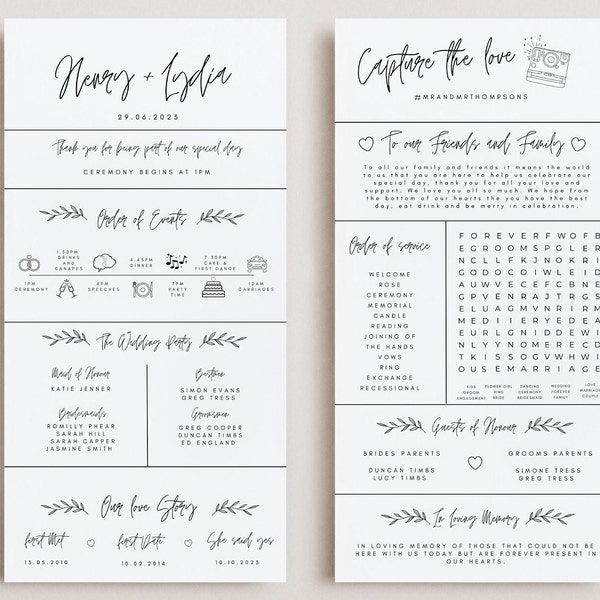 Henry + Lydia
29.06.2023
Thank you for being part of our special day
CEREMONY BEGINS AT 1PM
Order of Events
1.50PM
DRINKS
AND
CANAPES
4.45PM
DINNER
7.30PM
CAKE &
FIRST DANCE
12AM
CARRIAGES
1PM
CEREMONY
4PM
SPEECHES
7PM
PARTY
TIME
The Wedding Party
Maid of Honour
KATIE JENNER
Bridesmaids
ROMILLY PHEAR
SARAH HILL
SARAH CAPPER
JASMINE SMITH
Bestmen
SIMON EVANS
GREG TRESS
Groomsmen
GREG COOPER
DUNCAN TIMBS
ED ENGLAND
Our love Story
First Met
15.05.2010
First Date
10.02.2014
She said yes
10.10.2023
Capture the love
#MRANDMRTHOMPSONS
To our Friends and Family
To all our family and friends it means the world
to us that you are here to help us celebrate our
special day, thank you for all your love and
support. We love you all so much. We hope from
the bottom of our hearts the you have the best
day, eat drink and be merry in celebration.
Order of service
WELCOME
ROSE
CEREMONY
MEMORIAL
CANDLE
READING
JOINING OF
THE HANDS
VOWS
RING
EXCHANGE
RECESSIONAL
FOREVERFWOFB
EGROOMSPGLER
NCLLFKJNOKRI
GODOCOIWLEID
AUWVECEFCBNE
GPVENRAJTRGS
ELUAGMVNRIRM
MEDIIERYEDEA
EURLGNIDDEWI
NLYYNOMERECD
TKISSOGVWHWI
OUSEMARRIAGE
KISS
GROOM
ENGAGEMENT
FLOWER GIRL
RING
BRIDE
DANCING
CEREMONY
BRIDESMAID
WEDDING
FOREVER
FAMILY
LOVE
MARRIAGE
COUPLE
Guests of Honour
BRIDES PARENTS
DUNCAN TIMBS
LUCY TIMBS
GROOMS PARENTS
SIMONE TRESS
GREG TRESS
In Loving Memory
IN LOVING MEMORY OF THOSE THAT COULD NOT BE
HERE WITH US TODAY BUT ARE FOREVER PRESENT IN
OUR HEARTS.